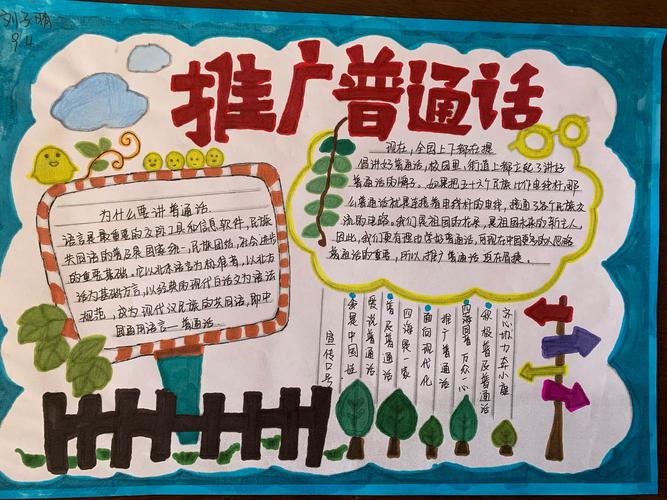 推广普通话
为什么要讲普通话
语言是最重要的交际工具和信息软件,民族
共同语的普及是国家统一,民族团结,社会进步
的重要基础。它以北京语言为标准音,以北方
话为基础方言,以经典的现代白话文为语法
规范,故为现代汉民族的共同语,即中
国通用语言——普通话
现在,全国上下都在提
倡讲好普通话,校园里,街道上都立起了讲好
普通话的牌子。如果把五十六个民族
么普通话就是连接着电线杆的电线,接通56个民族交
流的电路。我们是祖国的花朵,是祖国未来的新主人。
因此,我们更有理由学好普通话,可现在中国更多的人忽略
普通话的重要,所以对推广普通话迫在眉睫。
宣传口号
爱是中国娃
爱说普通话
普及普通话
四海是一家
面向现代化
推广普通话
四海同音 万众一心
积极普及普通话
齐心协力奔小康